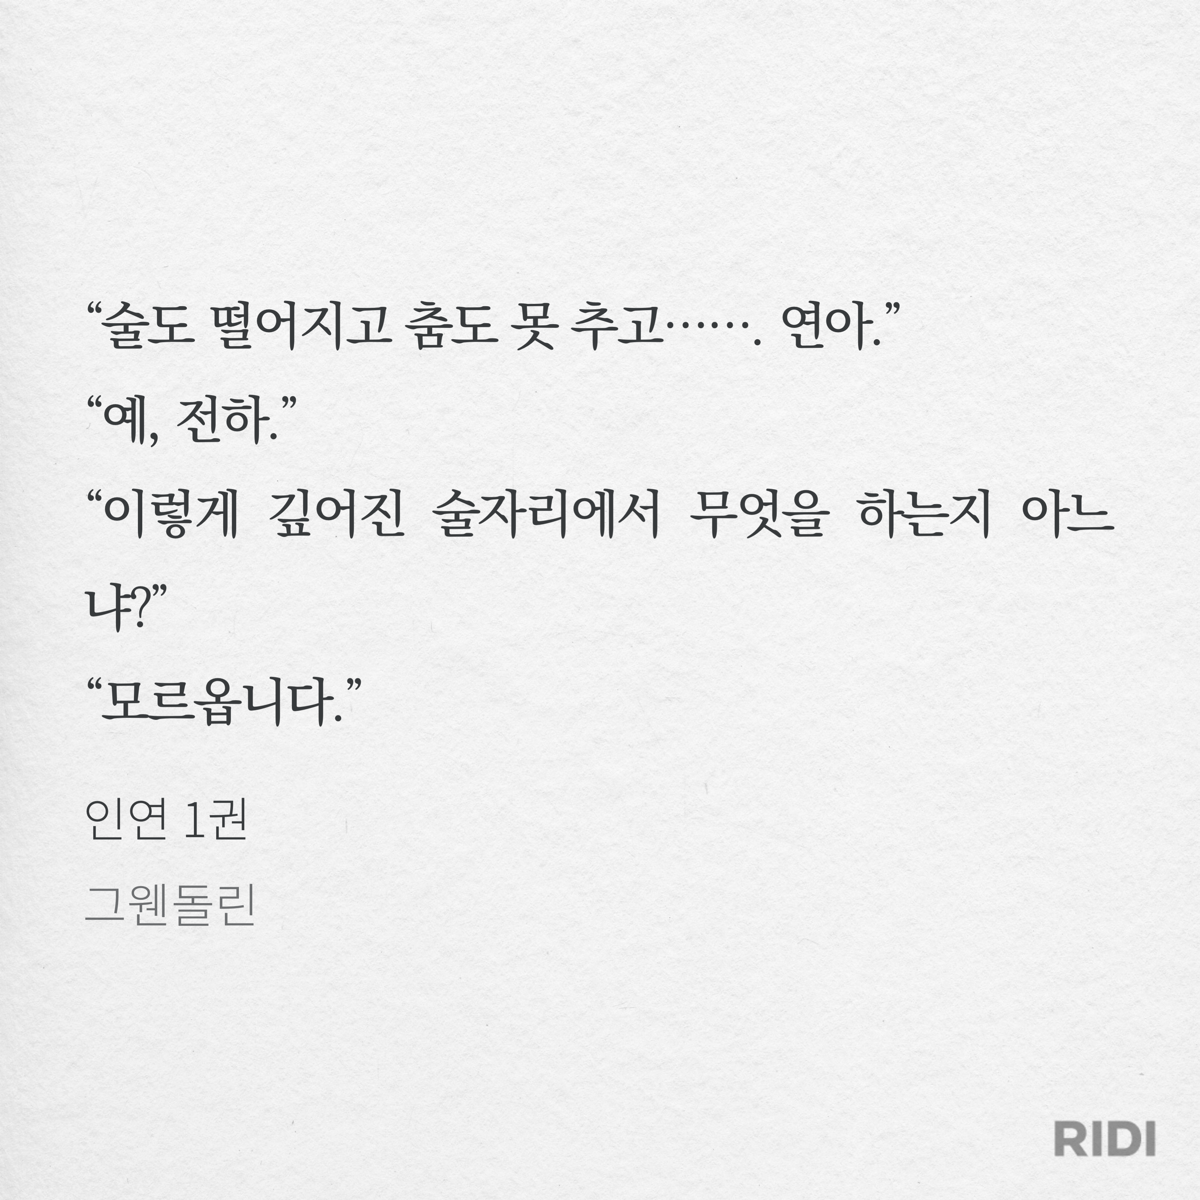 “술도 떨어지고 춤도 못 추고……. 연아.”
“예, 전하.”
“이렇게 깊어진 술자리에서 무엇을 하는지 아느
냐?”
“모르옵니다.”
인연 1권
그웬돌린
RIDI